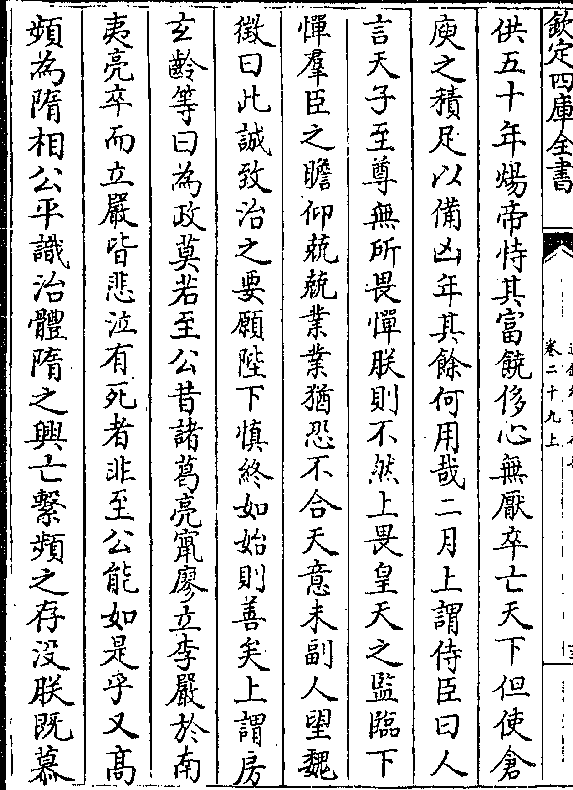 欽定四庫全書
卷二十九上
供五十年煬帝恃其富饒侈心無厭卒亡天下但使倉
庾之積足以備凶年其餘何用哉二月上謂侍臣曰人
言天子至尊無所畏憚朕則不然上畏皇天之監臨下
憚羣臣之瞻仰兢兢業業猶恐不合天意未副人望魏
徵曰此誠致治之要願陛下慎終如始則善矣上謂房
玄齡等曰為政莫若至公昔諸葛亮竄廖立李嚴於南
夷亮卒而立嚴皆悲泣有死者非至公能如是乎又高
熲為隋相公平識治體隋之興亡繫熲之存没朕既慕